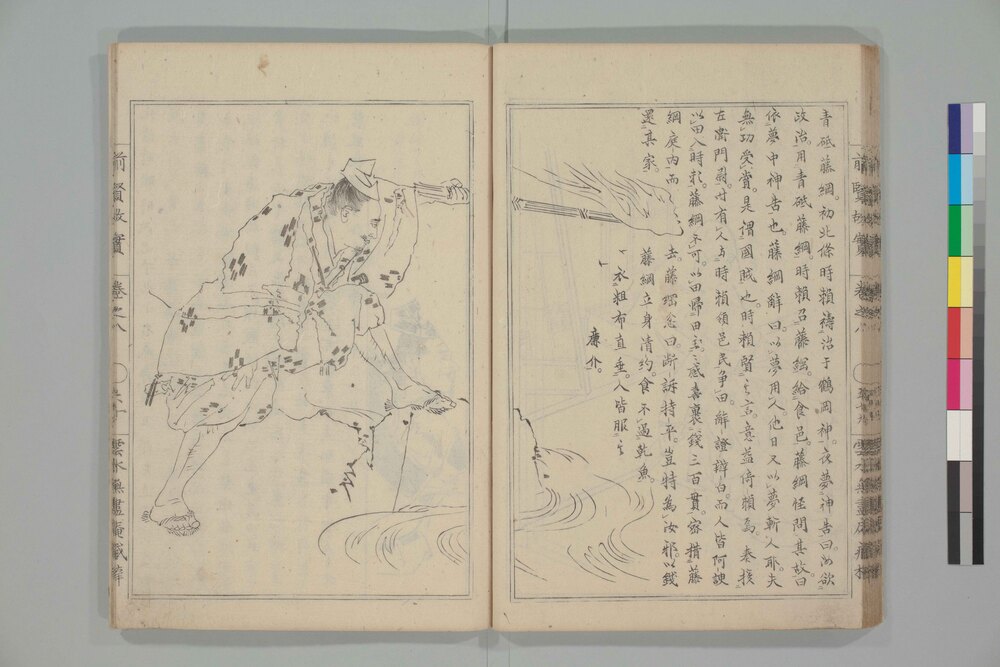 青砥藤綱。初北條時頼禱治于鶴岡神。夜夢神告曰。汝欲
政治。用青砥藤綱。時頼召藤綱給食邑。藤綱怪問其故曰
依夢中神告也。藤綱辭曰。以夢用人他日又以夢斬人耶。夫
無功受賞。是謂國賊也。時頼賢之言。意益倚頼焉。奏授
左衛門尉。甞有人与時頼領邑民争田。辭證辯白。而人皆阿諛
以田入時頼。藤綱不可。以田歸田主。主感喜裹錢三百貫。密措藤
綱庭内而去。藤綱忿曰。断訴持平。豈特為汝邪。以錢
還其家。藤綱立身清約。食不過乾魚。
衣粗布直垂。人皆服其
廉介。
前賢故實 巻之八
前賢故實 巻之八